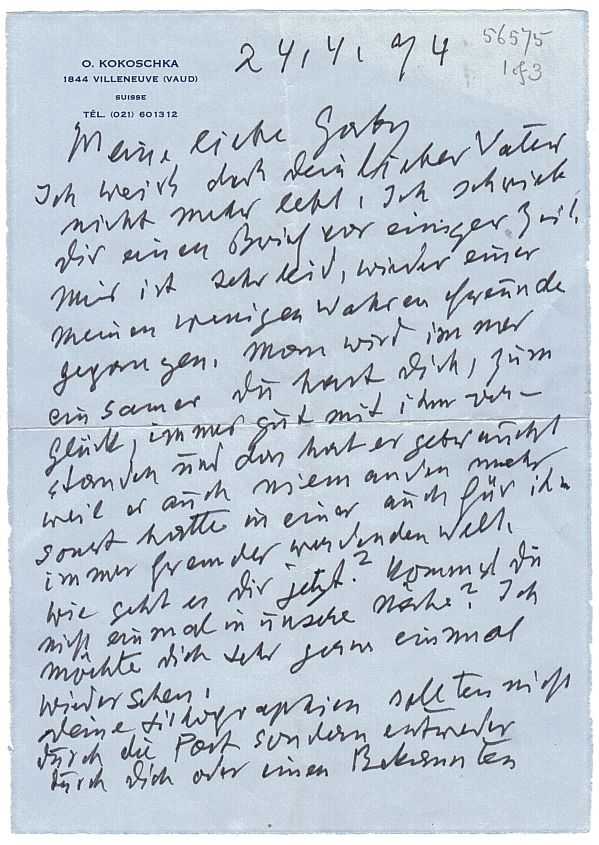 O. KOKOSCHKA
1844 VILLENEUVE (VAUD)
SUISSE
TÉL. (021) 601312
24, 4, 74
56575
1 of 3
Meine liebe Gaby
Ich weiß daß dein lieber Vater
nicht mehr lebt. Ich schrieb
dir einen Brief vor einiger Zeit.
Mir ist sehr leid, wieder einer
meiner wenigen wahren Freunde
gegangen. Man wird immer
einsamer du hast dich, zum
Glück, immer gut mit ihm ver-
standen und das hat er gebraucht
weil er auch niemanden mehr
sonst hatte in einer auch für ihn
immer fremder werdenden Welt.
Wie geht es dir jetzt? Kommst du
nicht einmal in unsere Nähe? Ich
möchte dich sehr gerne einmal
wiedersehen.
Deine Lithographien sollten nicht
durch die Post sondern entweder
durch dich oder einen Bekannten